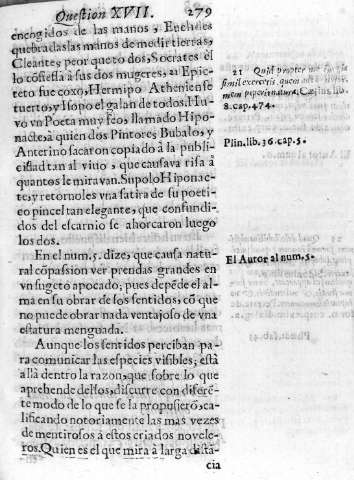 Question XVII. 279
encogidos de las manos, Euclides
quebradas las manos de medir tierras,
Cleante, peor que todos, Socrates èl
lo cõfiessa à sus dos mugeres, 21 Epic-
teto fue coxo, Hermipo Atheniense
tuerto, y Isopo el galan de todos. Hu-
vo vn Poeta muy feo, llamado Hipo-
nacte, à quien dos Pintores, Bubalo, y
Anterino sacaron copiado à la publi-
cidad tan al viuo, que causava risa à
quantos le miravan. Supolo Hiponac-
te, y retornoles vna satira de su poeti-
co pincel tan elegante, que confundi-
dos del escarnio se ahorcaron luego
los dos.
En el num. 5. dize, que causa natu-
ral cõpassion ver prendas grandes en
vn sugeto apocado; pues depẽde el al-
ma en su obrar de los sentidos, cõ que
no puede obrar nada ventajoso de vna
estatura menguada.
Aunque los sentidos perciban pa-
ra comunicar las especies visibles; està
allà dentro la razon, que sobre lo que
aprehende dellos, discurre con diferẽ-
te modo de lo que se la propusierõ, ca-
lificando notoriamente las mas vezes
de mentirosos à estos criados novele-
ros. Quien es el que mira à larga distã-
cia
21 Quid propter me
simil exerceris, quem
mem
8. cap. 474.
Plin. lib. 36. cap. 5.
El Autor al num. 5.